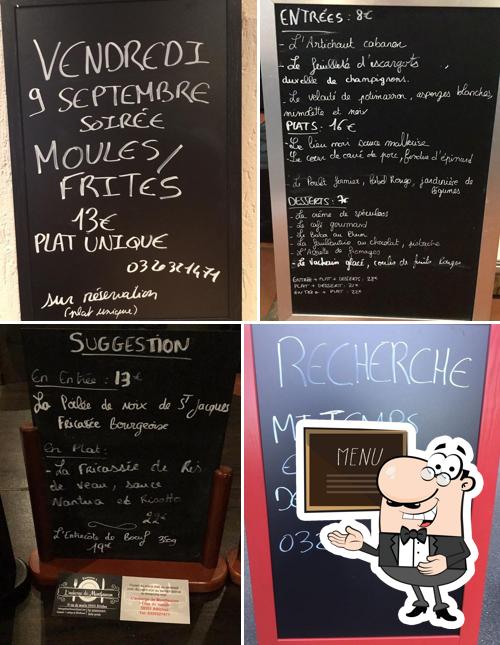 VENDREDI
9 SEPTEMBRE
SOIRÉE
MOULES/
FRITES
13€
PLAT UNIQUE
0326321471
sur réservation
(plat unique)
ENTRÉES : 8€
- L'Artichaut cabanon
- Le feuilleté d'escargots
duxelle de champignons.
- Le velouté de potimarron, asperges blanches,
mimolette et noix
PLATS : 16€
- Le lieu noir sauce maltaise
- Le cœur de carré de porc, fondue d'épinard
- Le Poulet fermier, label Rouge, jardinière de
légumes
DESSERTS : 7€
- La crème de spéculoos
- Le café gourmand
- Le Baba au Rhum
- La feuillantine au chocolat, pistache
- L'Assiette de fromages
- Le vacherin glacé, coulis de fruits Rouges
ENTRÉE + PLAT + DESSERTS : 28€
PLAT + DESSERT : 21€
ENTRÉE + PLAT : 22€
SUGGESTION
En Entrée : 13€
La Poêlée de noix de St Jacques
Fricassée Bourgeoise
En Plat :
- La Fricassée de Ris
de veau, sauce
Nantua et Risotto
22€
L'Entrecôte de Bœuf 350g
19€
L'auberge de Montfaucon
RECHERCHE
MI-TEMPS
032
MENU